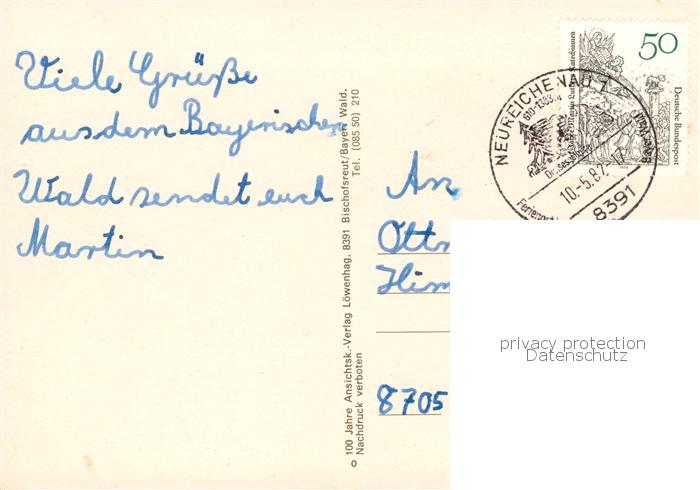 Viele Grüße
aus dem Bayerischen
Wald sendet euch
Martin
100 Jahre Ansichtsk.-Verlag Löwenhag, 8391 Bischofsreut/Bayer. Wald.
Tel. (085 50) 210
Nachdruck verboten
An
8705
NEUREICHENAU 1
10.-5.82
8391
50
Deutsche Bundespost
privacy protection
Datenschutz